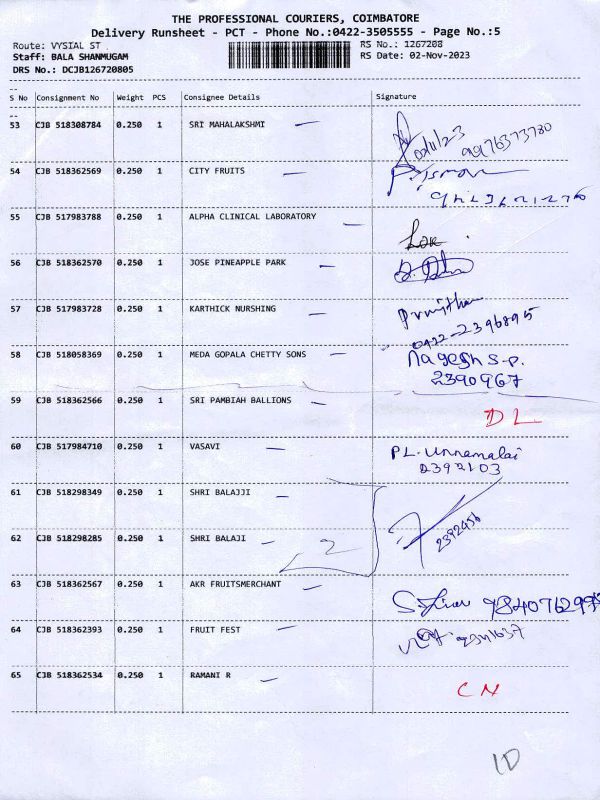 THE PROFESSIONAL COURIERS, COIMBATORE
Delivery Runsheet - PCT - Phone No.:0422-3505555 - Page No.:5
Route: VYSIAL ST RS No.: 1267208
Staff: BALA SHANMUGAM RS Date: 02-Nov-2023
DRS No.: DCJB126720805
S No Consignment No Weight PCS Consignee Details Signature
53 CJB 518308784 0.250 1 SRI MAHALAKSHMI
54 CJB 518362569 0.250 1 CITY FRUITS
55 CJB 517983788 0.250 1 ALPHA CLINICAL LABORATORY
56 CJB 518362570 0.250 1 JOSE PINEAPPLE PARK
57 CJB 517983728 0.250 1 KARTHICK NURSHING
0422-2396895
58 CJB 518058369 0.250 1 MEDA GOPALA CHETTY SONS Nagesh S.P.
2390967
59 CJB 518362566 0.250 1 SRI PAMBIAH BALLIONS
DL
60 CJB 517984710 0.250 1 VASAVI PL. Unnamalai
2392103
61 CJB 518298349 0.250 1 SHRI BALAJJI
62 CJB 518298285 0.250 1 SHRI BALAJI 2 2392456
63 CJB 518362567 0.250 1 AKR FRUITSMERCHANT
64 CJB 518362393 0.250 1 FRUIT FEST
65 CJB 518362534 0.250 1 RAMANI R
CN
10